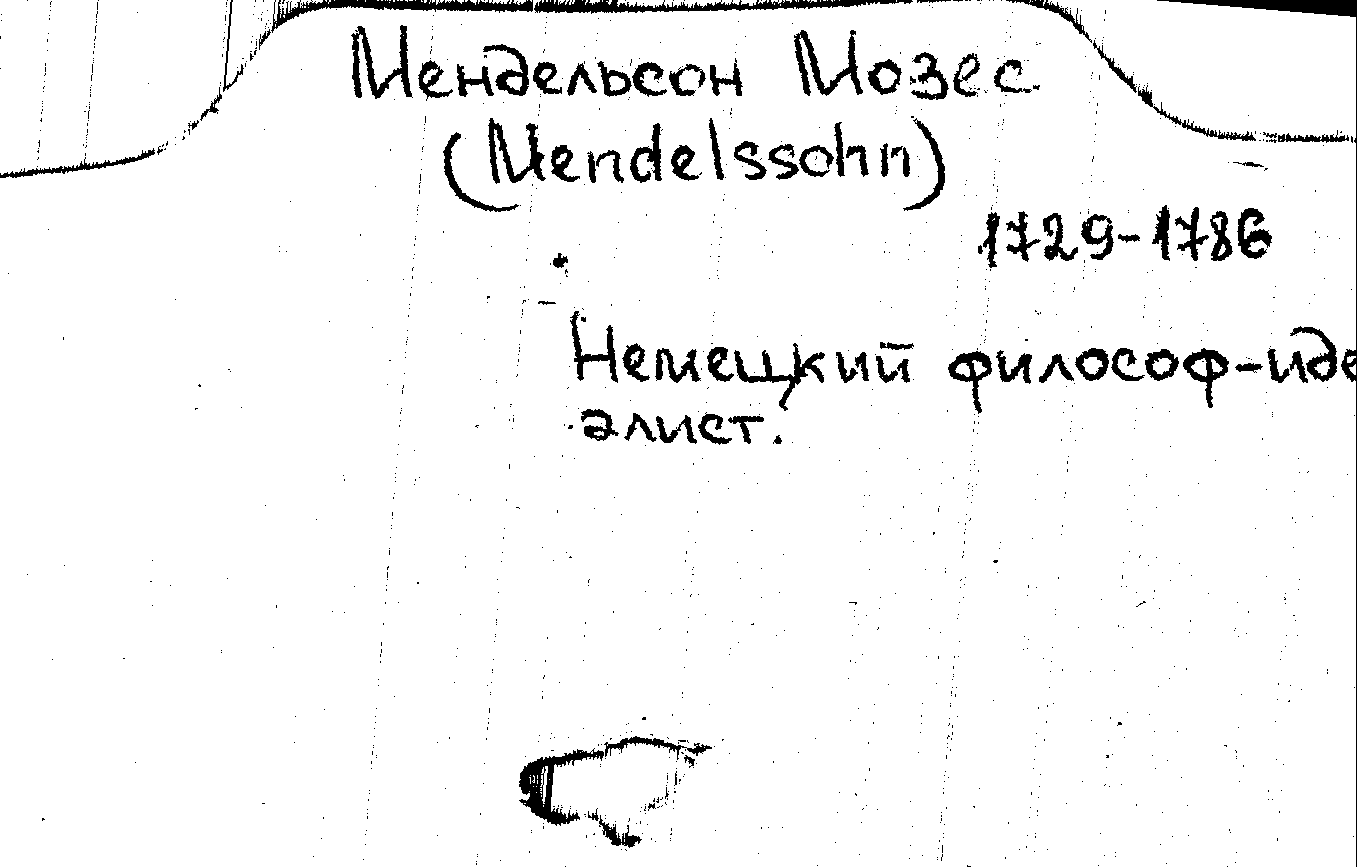 Мендельсон Мозес
(Mendelssohn)
1729-1786
Немецкий философ-иде
алист.